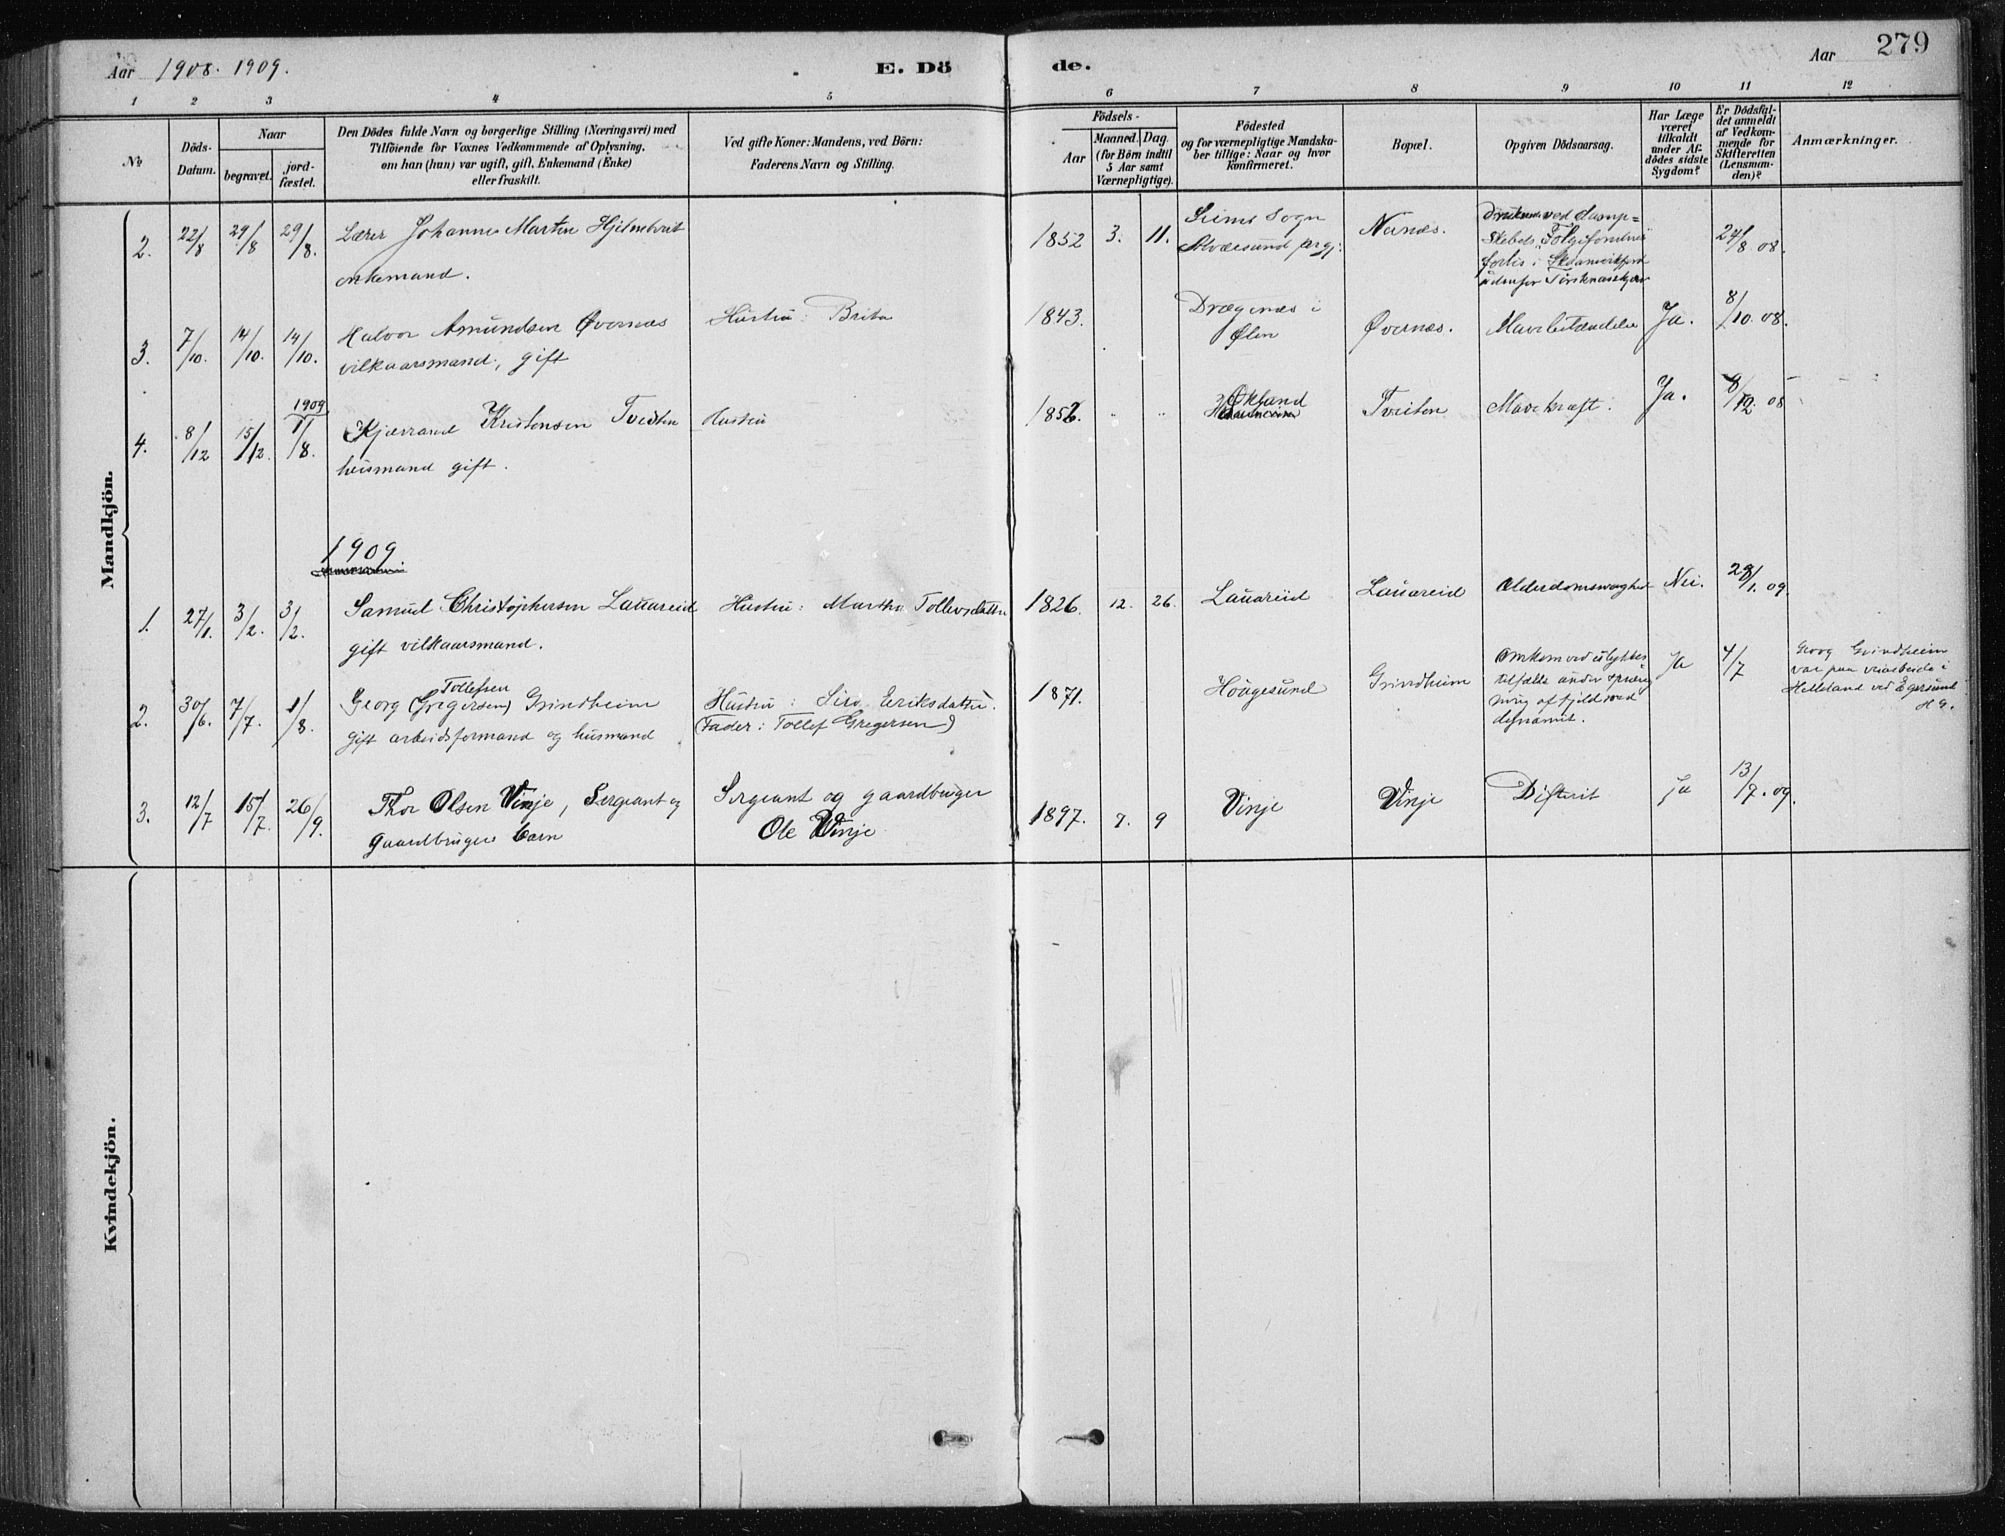 Aar 1908. 1909.
E. Dö
de.
Aar
279
1 2 3 4 5 6 7 8 9 10 11 12
No
Döds-
Datum.
Naar
begravet.
jord-
fæstet.
Den Dödes fulde Navn og borgerlige Stilling (Næringsvei) med
Tilföiende for Voxnes Vedkommende af Oplysning,
om han (hun) var ugift, gift, Enkemand (Enke)
eller fraskilt.
Ved gifte Koner: Mandens, ved Börn:
Faderens Navn og Stilling.
Födsels-
Aar
Maaned. Dag.
(for Börn indtil
5 Aar samt
Værnepligtige).
Födested
og for værnepligtige Mandska-
ber tillige: Naar og hvor
Konfirmeret.
Bopæl.
Opgiven Dödsaarsag.
Har Læge
været
tilkaldt
under Af-
dödes sidste
Sygdom?
Er Dödsfal-
det anmeldt
af Vedkom-
mende for
Skifteretten
(Lensman-
den)?
Anmærkninger.
Mandkjön.
2. 22/8 29/8 29/8. Lærer Johannes Martin
enkemand.
1852 3. 11.
Seims Sogn
Nernes.
ved Damp-
skebet Folgefondnes
forlis i
udenfor
24/8 08.
3. 7/10. 14/10. 14/10. Halvor Amundsen Øvernæs
vilkaarsmand, gift
Hustru: Brita
1843.
Drægenæs i
Ølen
Øvernæs.
Mavebetændelse
Ja.
8/10. 08.
4. 8/12 15/12. 1909 1/8. Kjærrand Kristensen Tveiten
husmand gift.
Hustru
1852. " "
Økland
Tveiten
Mavekræft.
Ja.
8/12 08
1909.
1. 27/1. 3/2. 3/2. Samuel Christophersen Lauareid
gift vilkaarsmand.
Hustru: Martha Tollevsdatter
1826. 12. 26.
Lauareid
Lauareid
Alderdomssvaghed
Nei.
28/1. 09.
2. 30/6. 7/7. 1/8.
Tollefsen
Georg (Gregersen) Grindheim
gift arbeidsformand og husmand
Hustru: Siri Eriksdatter.
(Fader: Tollef Gregersen)
1871.
Hougesund
Grindheim
Omkom ved ulykkes
tilfælde under spræng
ning af fjeld med
dynamit.
Ja
4/7
Georg Grindheim
var paa veiarbeide i
Helleland ved Egersund
H G.
3. 12/7 15/7. 26/9. Thor Olsen Vinje, Sergeant og
gaardbrugers barn
Sergeant og gaardbruger
Ole Vinje
1897. 7. 9
Vinje
Vinje
Difterit
ja
13/7. 09.
Kvindekjön.